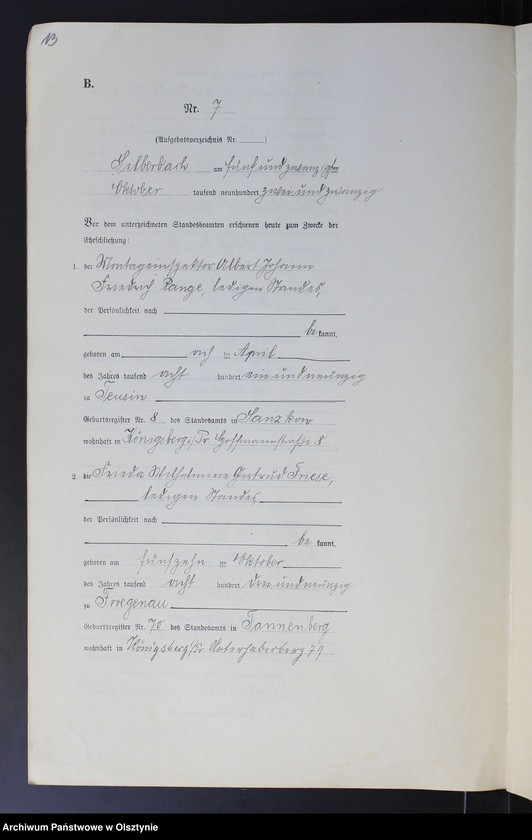 13
B.
Nr. 7
(Aufgebotsverzeichnis Nr. )
Silberbach am fünfundzwanzigsten
Oktober tausend neunhundert zweiundzwanzig
Vor dem unterzeichneten Standesbeamten erschienen heute zum Zwecke der
Eheschließung:
1. der Montageinspektor Albert Johann
Friedrich Lange, ledigen Standes,
der Persönlichkeit nach
be kannt,
geboren am acht ten April
des Jahres tausend acht hundert einundneunzig
zu Teusin
Geburtsregister Nr. 8 des Standesamts in Sanzkow
wohnhaft in Königsberg i/Pr Hoffmannstraße 8
2. die Frieda Wilhelmine Gertrud Friese,
ledigen Standes
der Persönlichkeit nach
be kannt,
geboren am fünfzehn ten Oktober
des Jahres tausend acht hundert dreiundneunzig
zu Froegenau
Geburtsregister Nr. 70 des Standesamts in Tannenberg
wohnhaft in Königsberg i/Pr Unterhaberberg 79
Archiwum Państwowe w Olsztynie